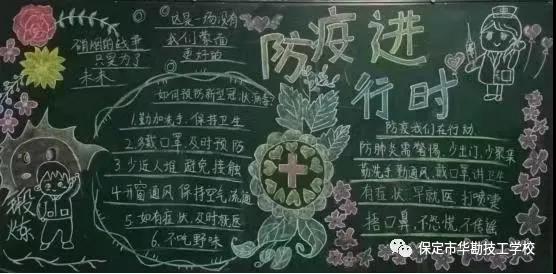 硝烟的战争
只是为了
未来
这是一场没有
我们蒙面
更好的
防疫进
行时
如何预防新型冠状病毒?
1.勤加洗手,保持卫生
2.多戴口罩,及时预防
3.少近人堆 避免接触
4.开窗通风 保持空气流通
5.如有症状,及时就医
6.不吃野味
锻炼
防疫我们在行动
防肺炎需警惕,少出门,少聚集
勤洗手 勤通风 戴口罩 讲卫生
有症状 早就医 打喷嚏
捂口鼻,不恐慌,不传谣
保定市华勘技工学校